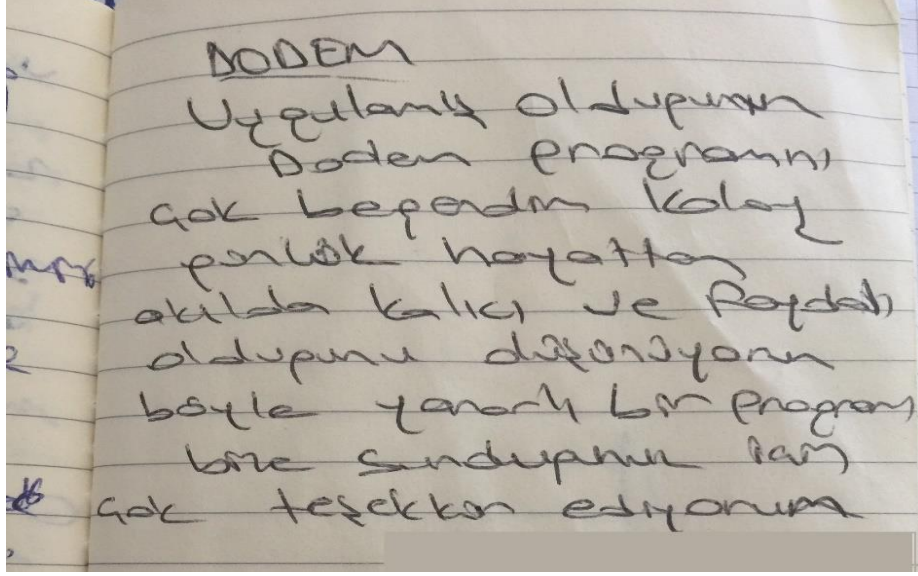 DODEM
Uygulamış olduğunuz
Dodem programını
çok beğendim kolay
günlük hayattan
akılda kalıcı ve faydalı
olduğunu düşünüyorum
böyle yararlı bir program
bize sunduğunuz için
çok teşekkür ediyorum